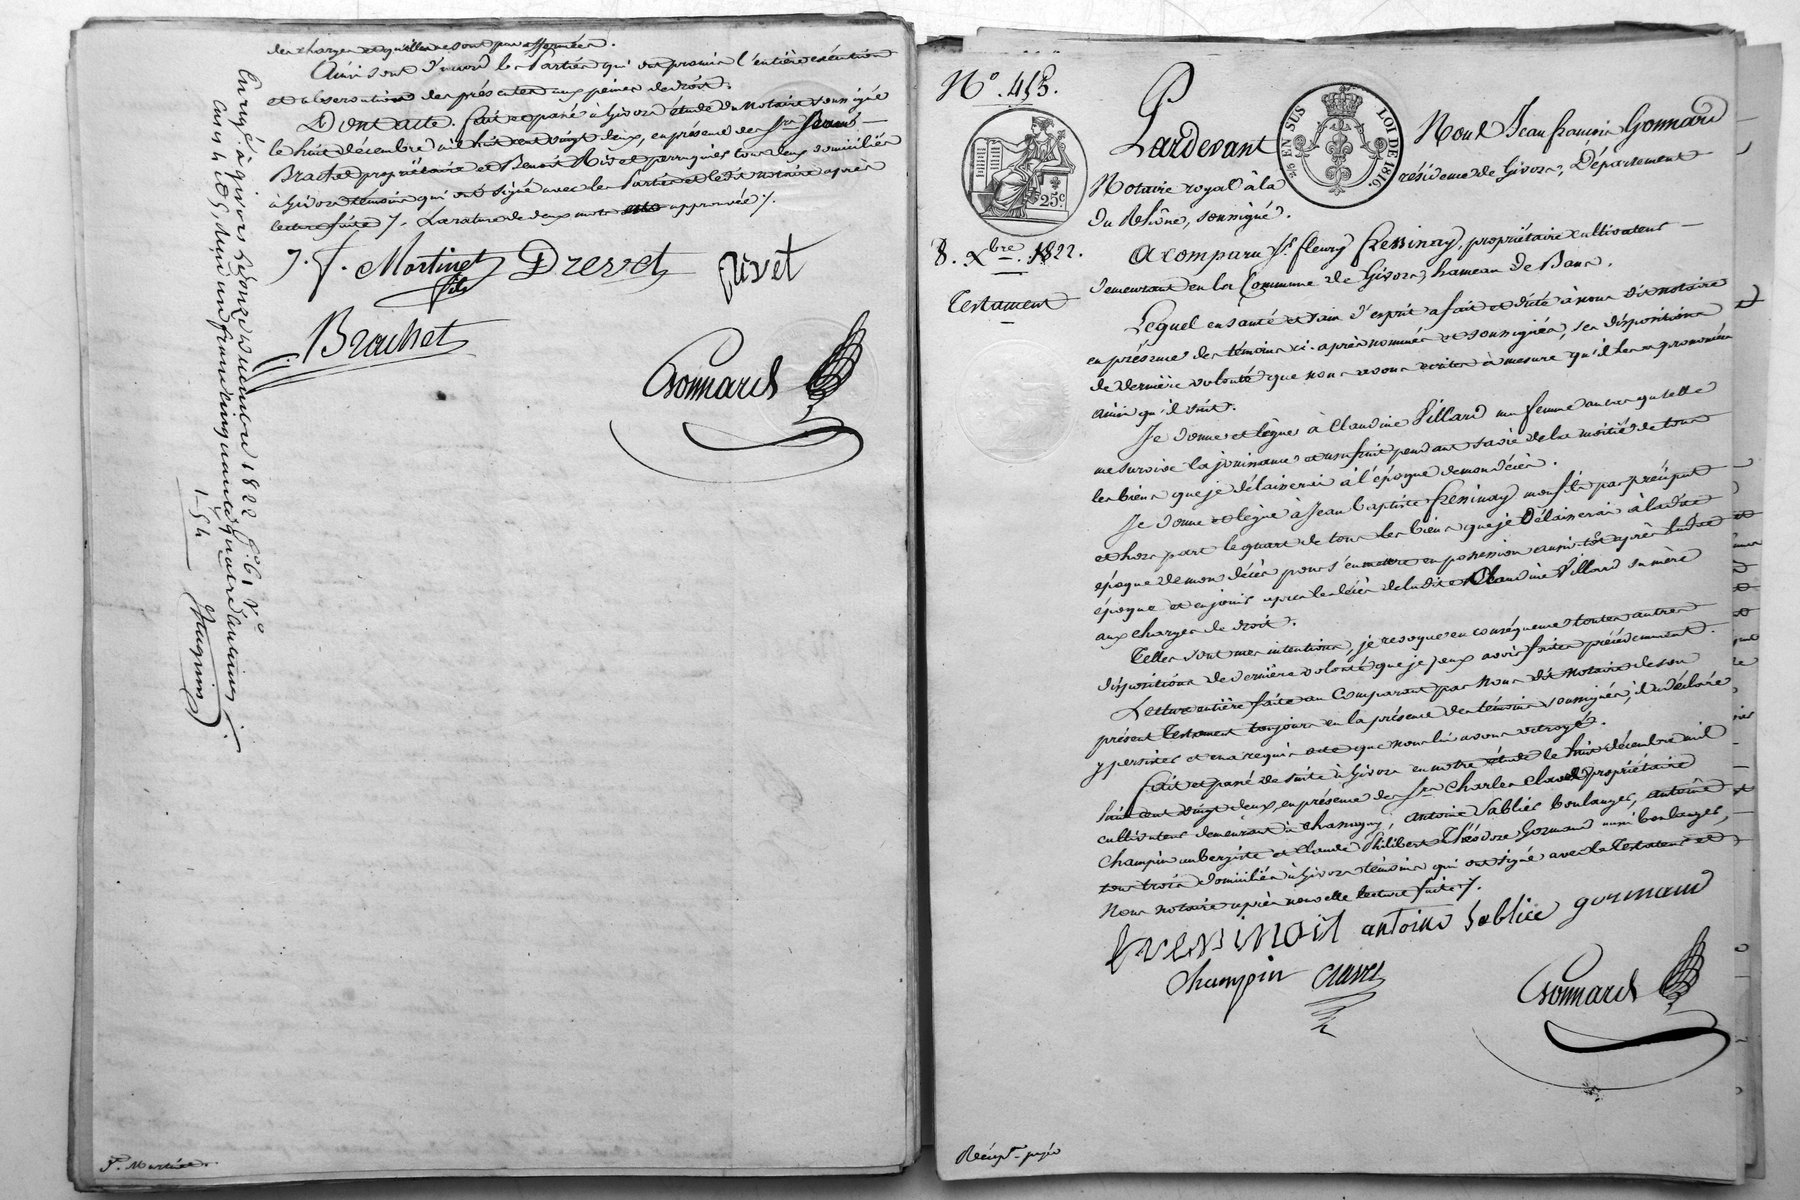 des charges et qu'elles ne sont pas affermées.
Ainsi sont d'accord les Parties qui ont promis l'entière exécution
et observation des présentes aux peines de droit.
Dont acte. fait et passé à Givors étude du notaire soussigné
le huit décembre mil huit cent vingt deux, en présence de Srs francs
Brachet propriétaire et Benoit Rivet perruquier tous deux domiciliés
à Givors témoins qui ont signé avec les Parties et led. notaire après
lecture faite /. La rature de deux mots approuvée /.
J. f. Martinet Drevet Rivet
fils
Brachet
Gonnard
Enregé. à givors le onze décembre 1822 f° 61 v°
cases 4 et 5, reçu un franc cinquante quatre centimes
1-54
f. Martinet
N° 453.
8. Xbre. 1822.
Testament
25 EN SUS LOI DE 1816.
25c
Pardevant Nous Jean françois Gonnard
Notaire royal à la résidence de Givors, Département
du Rhône, soussigné.
A comparu Sr. fleury fressinay, propriétaire cultivateur
demeurant en la Commune de Givors, hameau de Bans.
Lequel en santé et sain d'esprit a fait et dicté à nous dit notaire
en présence des témoins ci-après nommés et soussignés, ses dispositions
de dernière volonté que nous avons écrites à mesure qu'il les a prononcées
ainsi qu'il suit.
Je donne et lègue à Claudine Villard ma femme au cas qu'elle
me survive la jouissance et usufruit pendant sa vie de la moitié de tous
les biens que je délaisserai à l'époque de mon décès.
Je donne et lègue à Jean Baptiste fressinay mon fils par préciput
et hors part le quart de tous les biens que je délaisserai à ladte
époque de mon décès pour s'en mettre en possession aussi-tôt après ladte
époque et en jouir après le décès de ladite Claudine Villard sa mère
aux charges de droit.
Telles sont mes intentions, je révoque en conséquence toutes autres
dispositions de dernière volonté que je peux avoir faites précédemment.
Lecture entière faite au Comparant par Nous dit notaire de son
présent Testament toujours en la présence des témoins soussignés, il a déclaré
y persister et en a requis acte que nous lui avons octroyé.
fait et passé de suite à Givors en notre étude le huit décembre mil
huit cent vingt deux, en présence de Srs Charles Clavel propriétaire
cultivateur demeurant à Chassagny, Antoine Sablier boulanger, antoine
Champin aubergiste et Claude Philibert Théodore Gormand aussi boulanger,
tous trois domiciliés à Givors témoins qui ont signé avec le Testateur et
Nous notaire après nouvelle lecture faite /.
antoine Sablier gormand
Champin Clavel
Gonnard